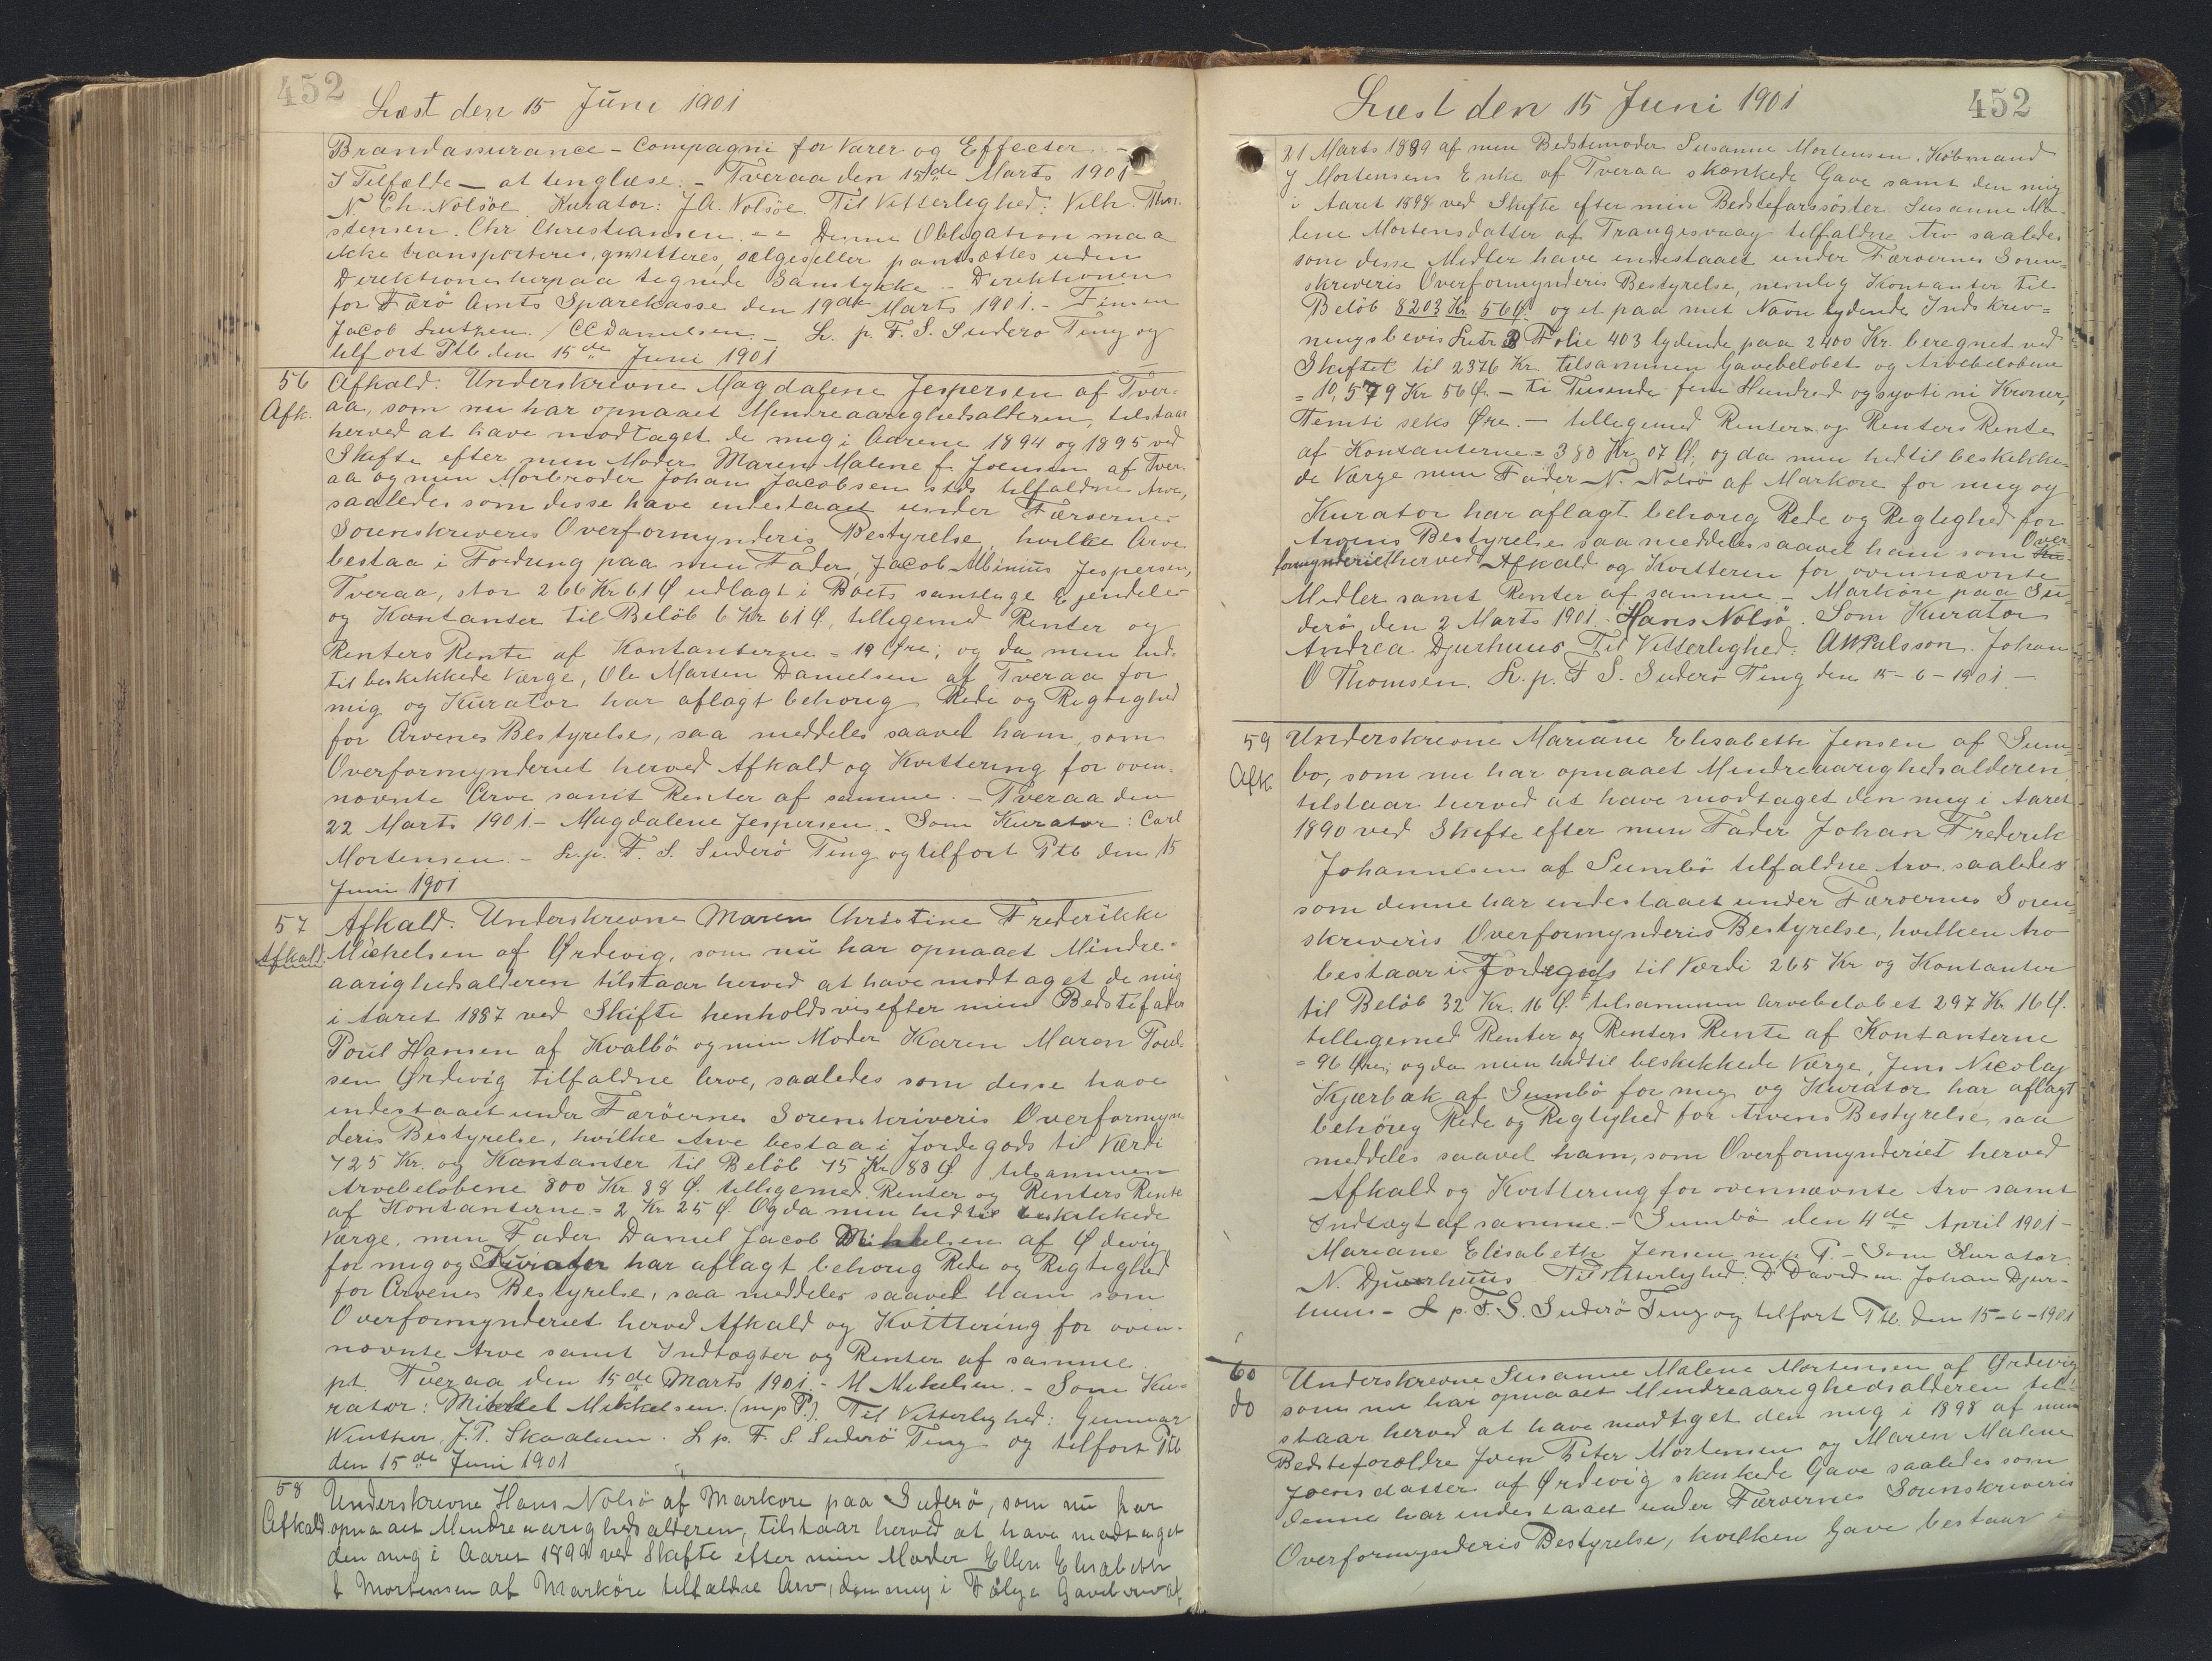 452
Læst den 15 Juni 1901
Brandassurance - Compagni for Varer og Effecter -
I Tilfælde - at tinglæse. - Tveraa den 15de Marts 1901
N. Ch. Nolsöe. Kurator: J.A. Nolsöe. Til Vitterlighed: Vilh. Thor-
stensen. Chr Christiansen. -"- Denne Obligation maa
ikke transporteres, qvitteres, sælges eller pantsættes uden
Direktionens herpaa tegnede Samtykke. - Direktionen
for Færö Amts Sparekasse den 19de Marts 1901. - Finsen
Jacob Lutzen / CC Danielsen. - L. p. F. S. Suderö Ting og
tilfört Ptb den 15de Juni 1901
56 Afkald. Underskrevne Magdalene Jespersen af Tver-
Afk. aa, som nu har opnaaet Mindreaarighedsalderen, tilstaar
herved at have modtaget de mig i Aarene 1894 og 1895 ved
Skifte efter min Moder Maren Malene f. Joensen af Tver-
aa og min Morbroder Johan Jacobsen stds tilfaldne Arve,
saaledes som disse have indestaaet under Færöernes
Sorenskriveris Overformynderis Bestyrelse, hvilke Arve
bestaa i Fordring paa min Fader, Jacob Albinus Jespersen,
Tveraa, stor 266 Kr 61 Ø udlagt i Boets samtlige Ejendele
og Kontanter til Belöb 6 Kr 61 Ø, tilligemed Renter og
Renters Rente af Kontanterne = 19 Øre; og da min hid-
til beskikkede Værge, Ole Morten Danielsen af Tveraa for
mig og Kurator har aflagt behörig Rede og Rigtighed
for Arvenes Bestyrelse, saa meddeles saavel ham, som
Overformynderiet herved Afkald og Kvittering for oven-
nævnte Arve samt Renter af samme. - Tveraa den
22 Marts 1901. - Magdalene Jespersen. Som Kurator: Carl
Mortensen. - L. p. F. S. Suderö Ting og tilfört Ptb den 15
Juni 1901
57 Afkald. Underskrevne Maren Christine Frederikke
Afkald. Michelsen af Ørdevig, som nu har opnaaet Mindre-
aarighedsalderen tilstaar herved at have modtaget de mig
i Aaret 1887 ved Skifte henholdsvis efter min Bedstefader
Poul Hansen af Kvalbö og min Moder Karen Maron Poul-
sen Ørdevig tilfaldne Arve, saaledes som disse have
indestaaet under Færöernes Sorenskriveris Overformyn-
deris Bestyrelse, hvilke Arve bestaa i Jordegods til Værdi
725 Kr. og Kontanter til Belöb 75 Kr 88 Ø tilsammen
Arvebelöbene 800 Kr 88 Ø. tilligemed Renter og Renters Rente
af Kontanterne = 2 Kr 25 Ø. Og da min hidtil beskikkede
Værge, min Fader Daniel Jacob Mikkelsen af Ødevig
for mig og Kurator har aflagt behörig Rede og Rigtighed
for Arvenes Bestyrelse, saa meddeles saavel ham som
Overformynderiet herved Afkald og Kvittering for oven-
nævnte Arve samt Indtægter og Renter af samme.
pt. Tveraa den 15de Marts 1901. - M Mikelsen. - Som Ku-
rator: Mikkel Mikkelsen. (m p P). Til Vitterlighed: Gunnar
Winther, J. P. Skaalum. L p. F. S Suderö Ting og tilfört Ptb
den 15de Juni 1901
58 Underskrevne Hans Nolsö af Marköre paa Suderö, som nu har
Afkald opnaaet Mindreaarighedsalderen, tilstaar herved at have modtaget
den mig i Aaret 1899 ved Skifte efter min Moder Ellen Elisabeth
f Mortensen af Marköre tilfaldne Arv, den mig i Følge Gavebrev af
Læst den 15 Juni 1901
452
31 Marts 1899 af min Bedstemoder Susanne Mortensen, Købmand
J Mortensens Enke af Tveraa skænkede Gave samt den mig
i Aaret 1898 ved Skifte efter min Bedstefarssöster Susanne Ma-
lene Mortensdatter af Trangisvaag tilfaldne Arv saaledes
som disse Midler have indestaaet under Færöernes Soren-
skriveris Overformynderis Bestyrelse, nemlig Kontanter til
Belöb 8203 Kr. 56 Ø. og et paa mit Navn lydende Indskriv-
ningsbevis Litr B Folie 403 lydende paa 2400 Kr. beregnet ved
Skiftet til 2376 Kr tilsammen Gavebelöbet og Arvebelöbene
= 10,579 Kr 56 Ø. - ti Tusende fem Hundred og syvti ni Kroner,
Femti seks Øre. - tilligemed Renter og Renters Rente
af Kontanterne = 380 Kr 07 Ø; og da min hidtil beskikke-
de Værge min Fader N. Nolsö af Marköre for mig og
Kurator har aflagt behörig Rede og Rigtighed for
Arvens Bestyrelse saa meddeles saavel ham som Over
formynderiet herved Afkald og Kvittering for ovennævnte
Midler samt Renter af samme. - Marköre paa Su-
derö, den 2 Marts 1901. Hans Nolsö. Som Kurator
Andrea Djurhuus Til Vitterlighed: A W Pálsson. Johan
O Thomsen. L. p. F S. Suderö Ting den 15-6-1901. -
59 Underskrevne Mariane Elisabeth Jensen af Sum-
Afk bö, som nu har opnaaet Mindreaarighedsalderen,
tilstaar herved at have modtaget den mig i Aaret
1890 ved Skifte efter min Fader Johan Frederik
Johannesen af Sumbö tilfaldne Arv. saaledes
som denne har indestaaet under Færöernes Soren-
skriveris Overformynderis Bestyrelse, hvilken Arv
bestaar i Jordegods til Værdi 265 Kr og Kontanter
til Belöb 32 Kr. 16 Ø. tilsammen Arvebelöbet 297 Kr 16 Ø.
tilligemed Renter og Renters Rente af Kontanterne
= 96 Øre; og da min hidtil beskikkede Værge, Jens Nicolaj
Kjærbæk af Sumbö for mig og Kurator har aflagt
behörig Rede og Rigtighed for Arvens Bestyrelse, saa
meddeles saavel ham, som Overformynderiet herved
Afkald og Kvittering for ovennævnte Arv samt
Indtægt af samme. - Sumbö den 4de April 1901 -
Mariane Elisabeth Jensen m. p. P. - Som Kurator.
N. Djuurhuus Til Vitterlighed: D Davidsen Johan Djur-
huus - L p. F. S. Suderö Ting og tilfört Ptb. den 15-6-1901
60 Underskrevne Susanne Malene Mortensen af Ørdevig
do som nu har opnaaet Mindreaarighedsalderen til-
staar herved at have modtget den mig i 1898 af min
Bedsteforældre Joen Peter Mortensen og Maren Malene
Joensdatter af Ørdevig skænkede Gave saaledes som
denne har indestaaet under Færöernes Sorenskriveris
Overformynderis Bestyrelse, hvilken Gave bestaar i